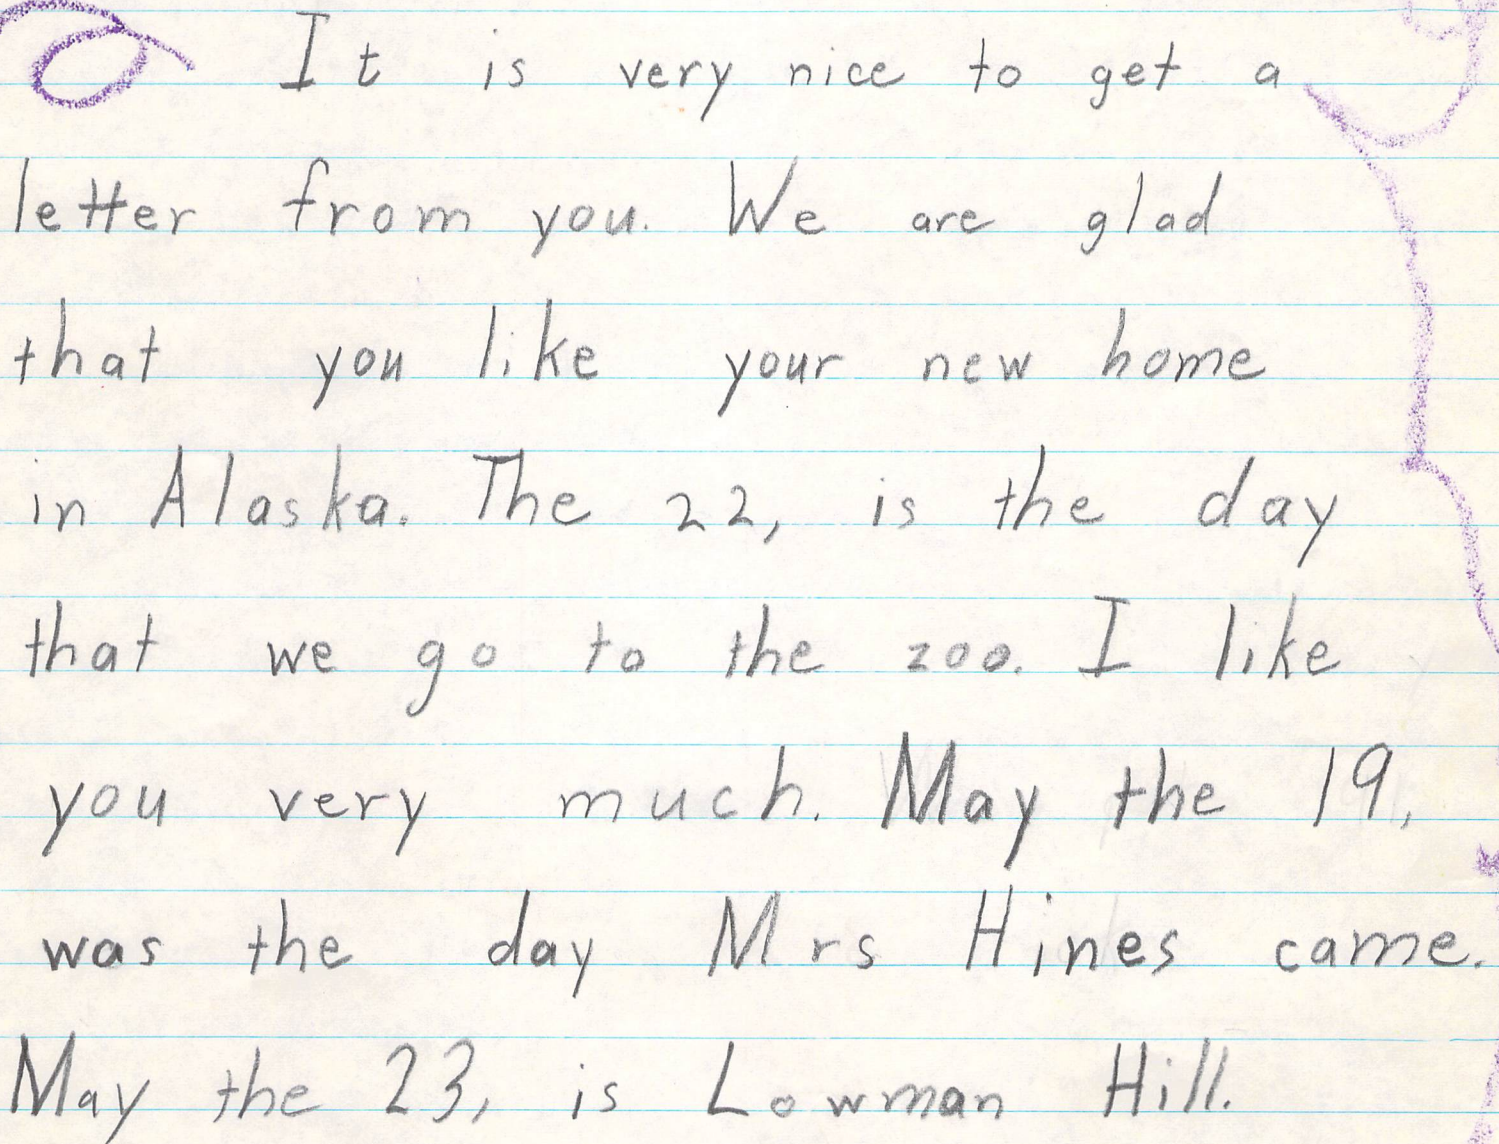 It is very nice to get a
letter from you. We are glad
that you like your new home
in Alaska. The 22, is the day
that we go to the zoo. I like
you very much. May the 19,
was the day Mrs Hines came.
May the 23, is Lowman Hill.